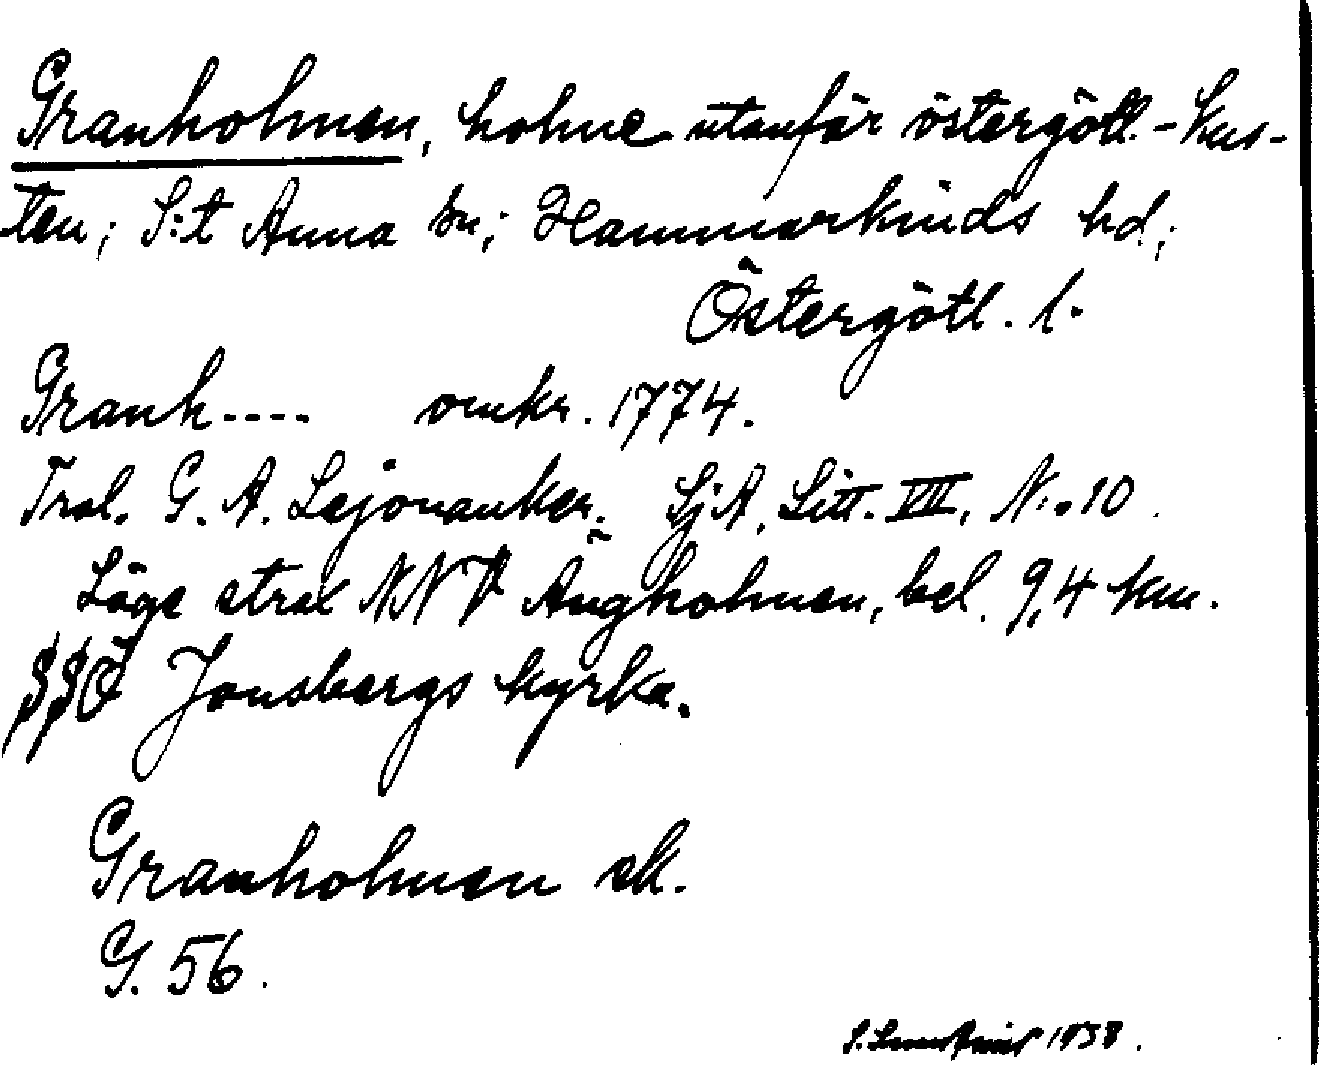 Granholmen, holme utanför östergötl.-kus-
ten; S:t Anna sn; Hammarkinds hd;
Östergötl. l.
Granh---- omkr. 1774.
Trol. G. A. Lejonanker. SjA, Litt. VIII, N:o 10.
Läge strax NNV Ängholmen, bel. 9,4 km.
SSÖ Jonsbergs kyrka.
Granholmen ek.
G. 56.
1938.